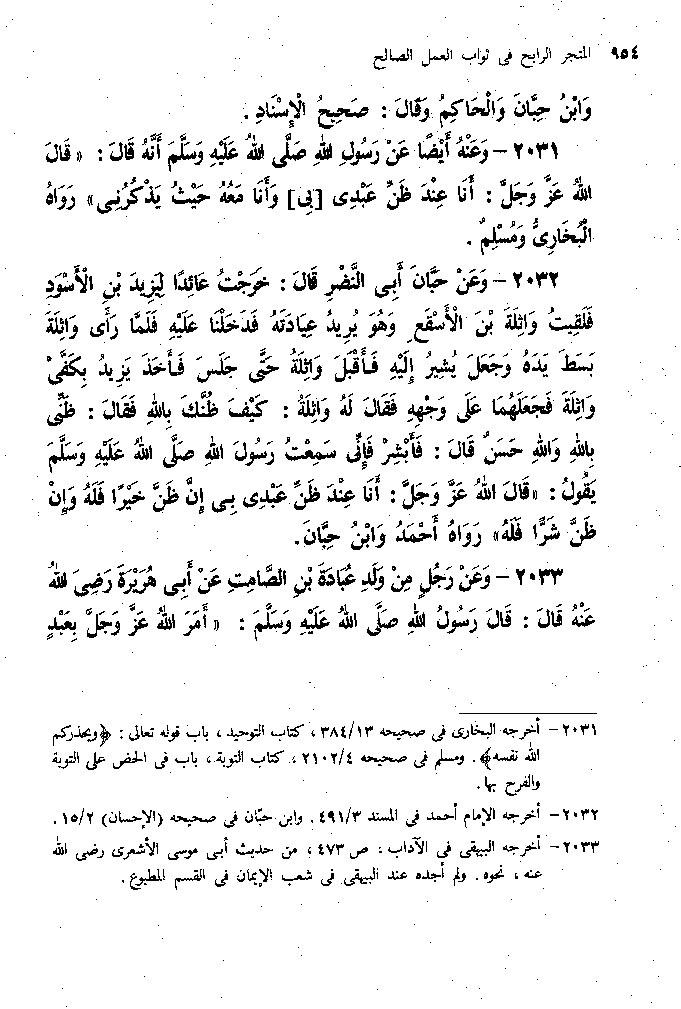 ٩٥٤ المتجر الرابح فى ثواب العمل الصالح
وَابْنُ حِبَّانَ وَالْحَاكِمُ وَقَالَ : صَحِيحُ الْإِسْنَادِ .
٢٠٣١ - وَعَنْهُ أَيْضًا عَنْ رَسُولِ اللهِ صَلَّى اللهُ عَلَيْهِ وَسَلَّمَ أَنَّهُ قَالَ : « قَالَ
اللهُ عَزَّ وَجَلَّ : أَنَا عِنْدَ ظَنِّ عَبْدِى [بِى] وَأَنَا مَعَهُ حَيْثُ يَذْكُرُنِى» رَوَاهُ
الْبُخَارِىُّ وَمُسْلِمٌ .
٢٠٣٢ - وَعَنْ حَيَّانَ أَبِى النَّضْرِ قَالَ : خَرَجْتُ عَائِدًا لِيَزِيدَ بْنِ الْأَسْوَدِ
فَلَقِيتُ وَاثِلَةَ بْنَ الْأَسْقَعِ وَهُوَ يُرِيدُ عِيَادَتَهُ فَدَخَلْنَا عَلَيْهِ فَلَمَّا رَأَى وَاثِلَةَ
بَسَطَ يَدَهُ وَجَعَلَ يُشِيرُ إِلَيْهِ فَأَقْبَلَ وَاثِلَةُ حَتَّى جَلَسَ فَأَخَذَ يَزِيدُ بِكَفَّىْ
وَاثِلَةَ فَجَعَلَهُمَا عَلَى وَجْهِهِ فَقَالَ لَهُ وَاثِلَةُ : كَيْفَ ظَنُّكَ بِاللهِ فَقَالَ : ظَنِّى
بِاللهِ وَاللهِ حَسَنٌ قَالَ : فَأَبْشِرْ فَإِنِّى سَمِعْتُ رَسُولَ اللهِ صَلَّى اللهُ عَلَيْهِ وَسَلَّمَ
يَقُولُ : «قَالَ اللهُ عَزَّ وَجَلَّ : أَنَا عِنْدَ ظَنِّ عَبْدِى بِى إِنَّ ظَنَّ خَيْرًا فَلَهُ وَإِنْ
ظَنَّ شَرًّا فَلَهُ» رَوَاهُ أَحْمَدُ وَابْنُ حِبَّانَ.
٢٠٣٣ - وَعَنْ رَجُلٍ مِنْ وَلَدِ عُبَادَةَ بْنِ الصَّامِتِ عَنْ أَبِى هُرَيْرَةَ رَضِىَ اللهُ
عَنْهُ قَالَ : قَالَ رَسُولُ اللهِ صَلَّى اللهُ عَلَيْهِ وَسَلَّمَ : « أَمَرَ اللهُ عَزَّ وَجَلَّ بِعَبْدٍ
٢٠٣١ - أخرجه البخارى فى صحيحه ٣٨٤/١٣ ، كتاب التوحيد ، باب قوله تعالى : ﴿ويحذركم
الله نفسه﴾ . ومسلم فى صحيحه ٢١٠٢/٤ ، كتاب التوبة ، باب فى الحض على التوبة
والفرح بها .
٢٠٣٢ - أخرجه الإمام أحمد فى المسند ٤٩١/٣ . وابن حبّان فى صحيحه (الإحسان) ١٥/٢ .
٢٠٣٣ - أخرجه البيهقى فى الآداب : ص ٤٧٣ ، من حديث أبى موسى الأشعرى رضى الله
عنه ، نحوه . ولم أجده عند البيهقى فى شعب الإيمان فى القسم المطبوع .